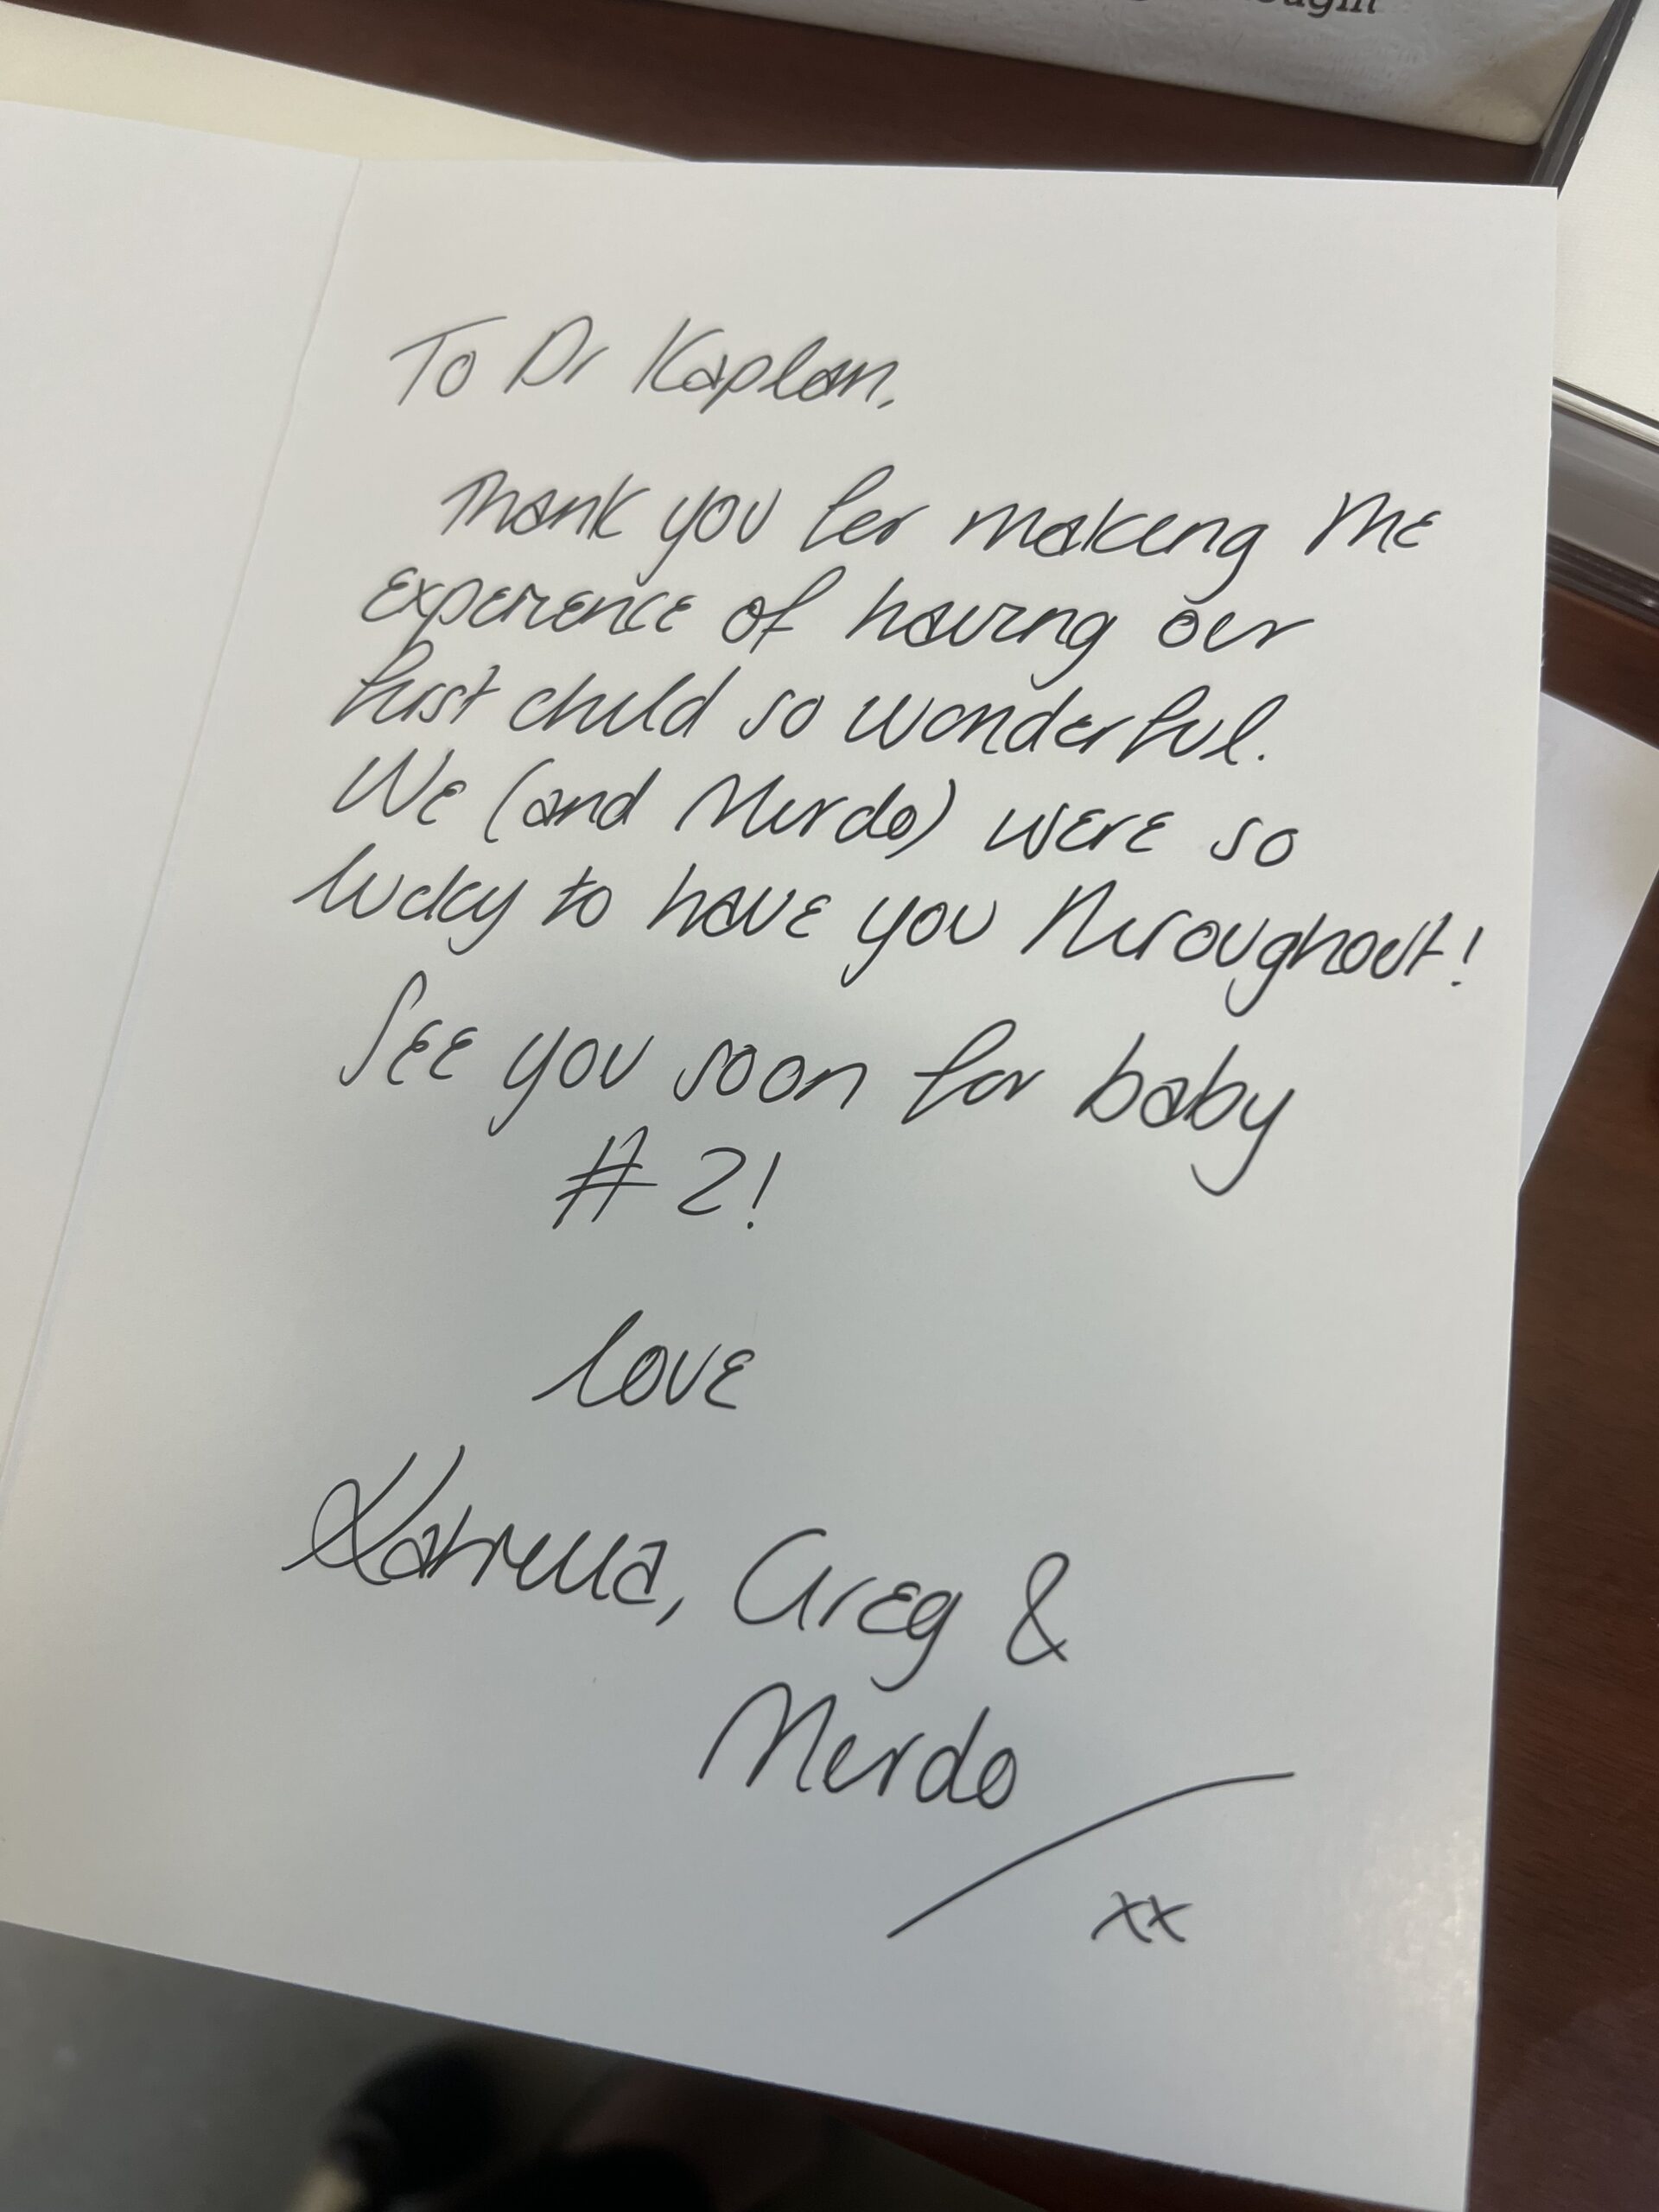 ought
To Dr Kaplan,
Thank you for making the
experience of having our
first child so wonderful.
We (and Murdo) were so
lucky to have you throughout!
See you soon for baby
# 2!
love
Katrina, Greg &
Murdo
xx